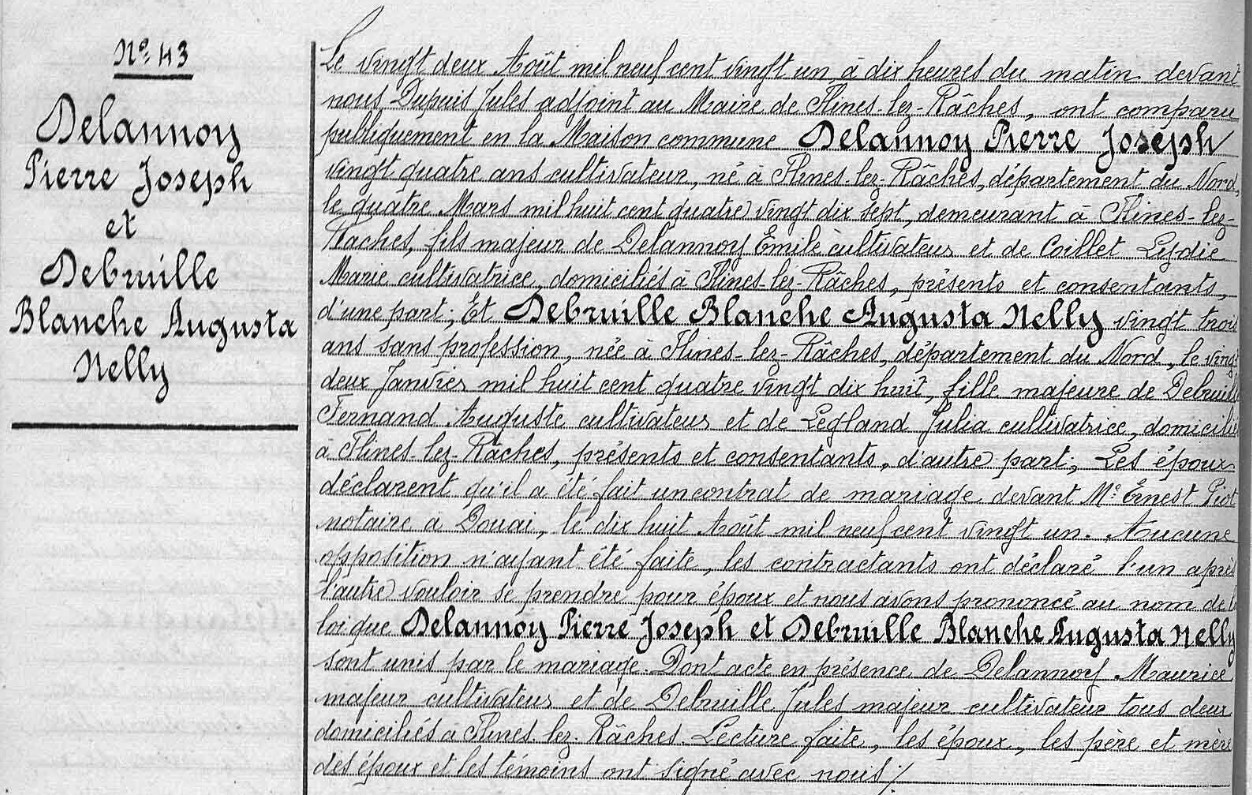 No. 43
Delannoy
Pierre Joseph
et
Debruille
Blanche Augusta
Nelly
Le vingt deux Août mil neuf cent vingt un à dix heures du matin devant
nous Dupuis Jules adjoint au Maire de Flines-lez-Râches, ont comparu
publiquement en la Maison commune Delannoy Pierre Joseph
vingt quatre ans cultivateur, né à Flines-lez-Râches, département du Nord,
le quatre Mars mil huit cent quatre vingt dix sept, demeurant à Flines-lez-
Raches, fils majeur de Delannoy Emile cultivateur et de Coillet Lydie
Marie cultivatrice, domiciliés à Flines-lez-Râches, présents et consentants,
d'une part; Et Debruille Blanche Augusta Nelly vingt trois
ans sans profession, née à Flines-lez-Râches, département du Nord, le vingt
deux Janvier mil huit cent quatre vingt dix huit, fille majeure de Debruille
Fernand Auguste cultivateur et de Legland Julia cultivatrice, domiciliés
à Flines-lez-Râches, présents et consentants, d'autre part; Les époux
déclarent qu'il a été fait un contrat de mariage devant Me Ernest Piot
notaire à Douai, le dix huit Août mil neuf cent vingt un. Aucune
opposition n'ayant été faite, les contractants ont déclaré l'un après
l'autre vouloir se prendre pour époux et nous avons prononcé au nom de la
loi que Delannoy Pierre Joseph et Debruille Blanche Augusta Nelly
sont unis par le mariage. Dont acte en présence de Delannoy Maurice
majeur cultivateur et de Debruille Jules majeur cultivateur tous deux
domiciliés à Flines-lez-Râches. Lecture faite, les époux, les père et mère
des époux et les témoins ont signé avec nous /